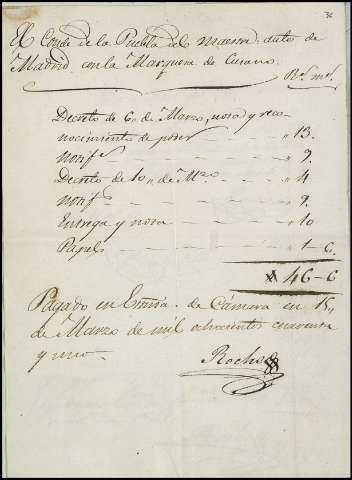 36
El Conde de la Puebla del Maestre, auto de
Madrid con la Marquesa de
Rs. ms.
Decreto de 6,, de Marzo, nota y reco-
nocimiento de poder — — — ,, 13.
notif — — — — — ,, 9.
Decreto de 10,, de Mzo — — ,, 4
notif — — — — — ,, 9.
Entrega y nota — — — ,, 10
Papel — — — — ,, 1-6.
46-6
Pagado en Escnia. de Cámara en 15,,
de Marzo de mil ochocientos cuarenta
y uno.—